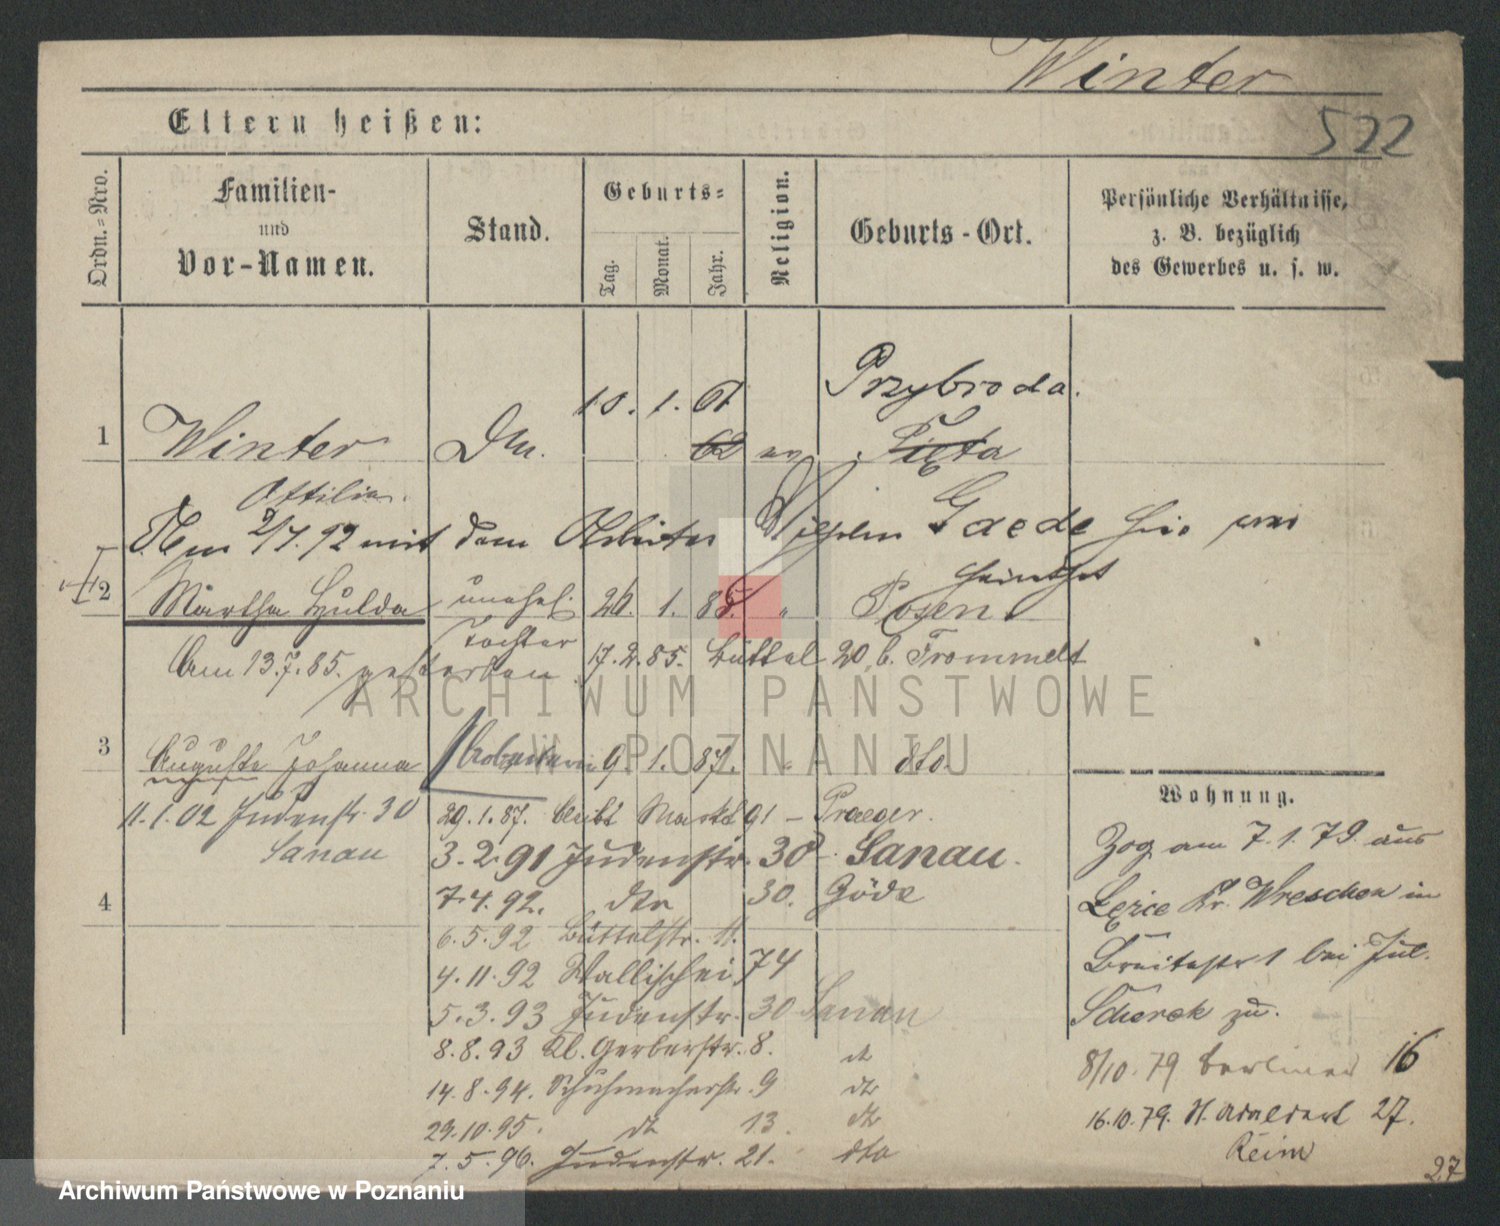 Winter
522
Eltern heißen:
Ordn.-Nro.
Familien-
und
Vor-Namen.
Stand.
Geburts-
Tag.
Monat.
Jahr.
Religion.
Geburts-Ort.
Persönliche Verhältnisse,
z. B. bezüglich
des Gewerbes u. s. w.
Przybroda.
10. 1. 61
1 Winter 62 ev Pięta
Ottilie.
Am 2/7. 92 mit dem Arbeiter Wilhelm Gaede hier
heirathet
2 Martha Hulda unehel. 26. 1. 85. " Posen.
Tochter
Am 13.7.85. gestorben 17.2.85. Büttel 20, b. Frommelt
ARCHIWUM PAŃSTWOWE
W POZNANIU
3 Auguste Johanna Arbeiterin 9 1. 87. " dto.
Wohnung.
11.1.02 Judenstr. 30
Sanau
29.1.87. Markt 91 – Praeger.
3.2.91 Judenstr. 30 Sanau.
4
7.4.92. dto 30. Göde
6.5.92 Büttelstr. 11.
4.11.92 Wallischei 74
5.3.93 Judenstr. 30 Sanau
8.8.93 Kl. Gerberstr. 8. dt
14.8.94. Schuhmacherstr. 9 dto
29.10.95. dt 13. dto
7.5.96. Judenstr. 21. dto
Zog am 7.1.79. aus
Kr. Wreschen in
Breitestr 1 bei Jul.
Scherek zu.
8/10. 79 Berliner 16
16.10.79. St. Adalbert 27.
Reim
27
Archiwum Państwowe w Poznaniu